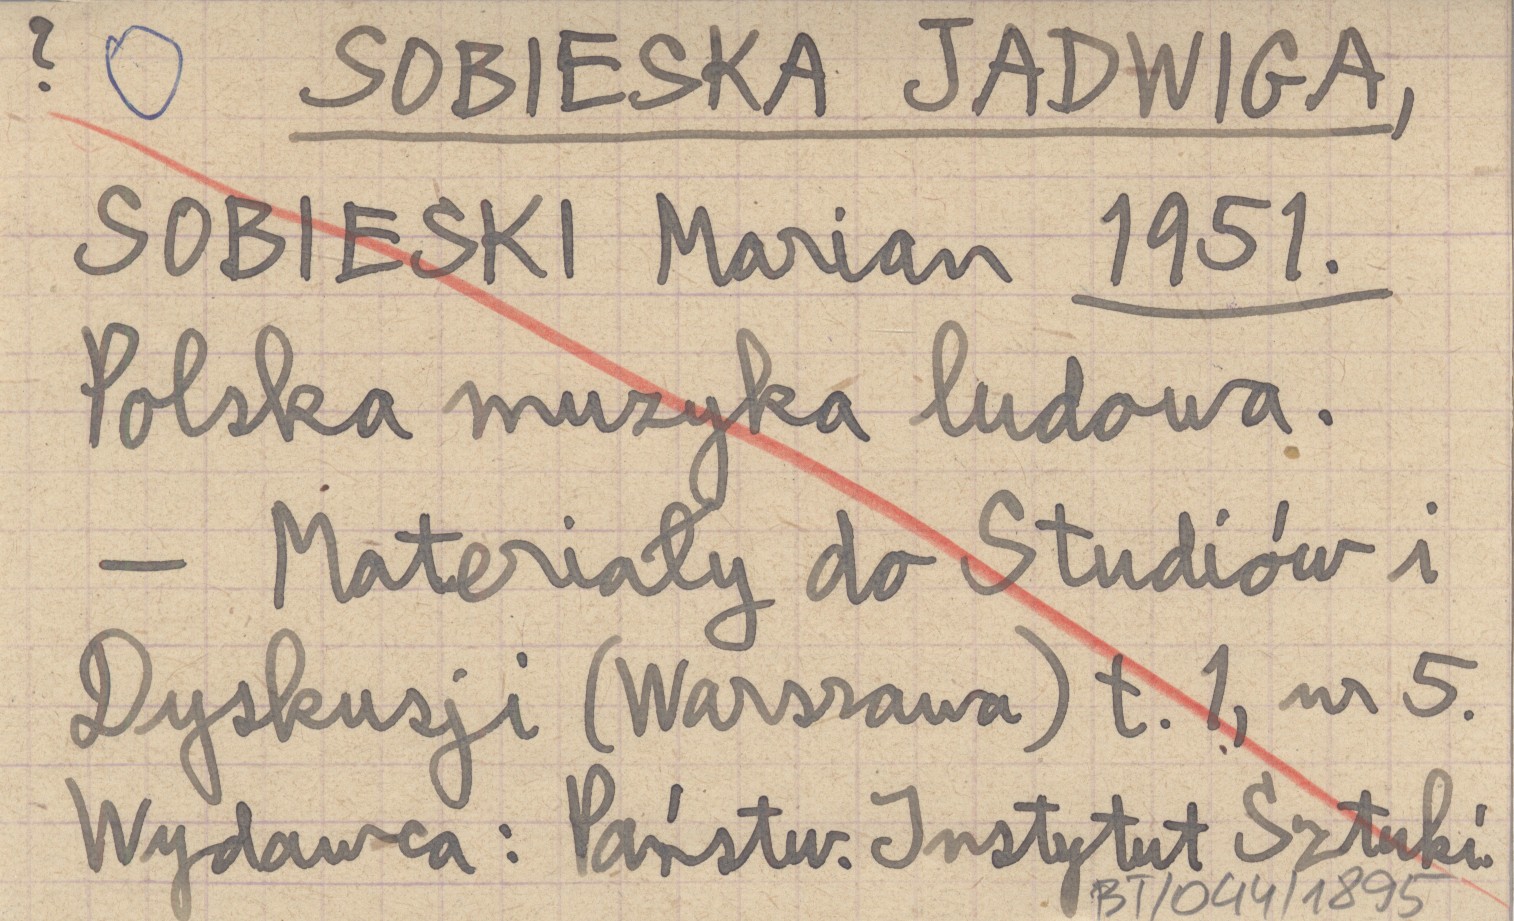 ? O SOBIESKA JADWIGA,
SOBIESKI Marian 1951.
Polska muzyka ludowa.
— Materiały do Studiów i
Dyskusji (Warszawa) t. 1, nr 5.
Wydawca: Państw. Instytut Sztuki.
BT/044/1895